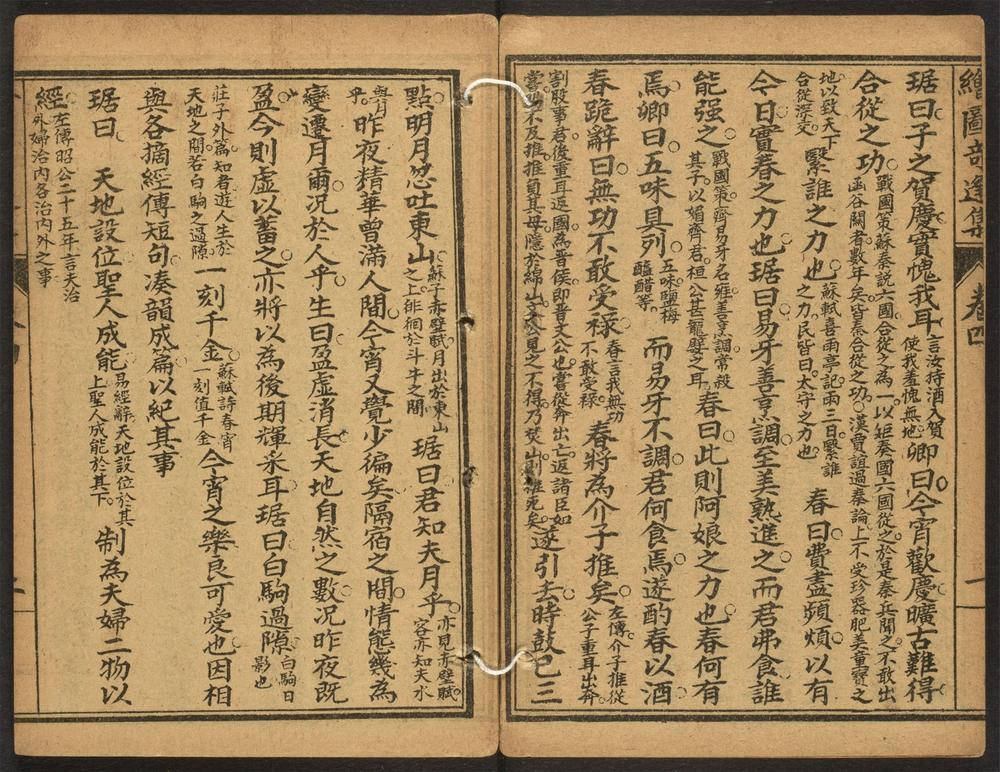 繪圖奇逢集 卷四 一
琚曰子之賀慶實愧我耳言汝持酒入賀使我羞愧無地卿曰今宵歡慶曠古難得
合從之功戰國策蘇秦説六國合從之為一以距秦國六國從之於是秦兵聞之不敢出函谷關者數年矣皆秦合從之功漢賈誼過秦論上不受珍器肥美童寶之
地以致天下合從深交繄誰之力也蘇軾喜雨亭記雨三日繄誰之力民皆曰太守之力也春曰費盡頻煩以有
今日實春之力也琚曰易牙善烹調至美熟進之而君弗食誰
能强之戰國策齊易牙名雍善烹調常殺其子以媚齊君桓公甚寵嬖之耳春曰此則阿娘之力也春何有
焉卿曰五味具列五味鹽梅醯醋等而易牙不調君何食焉遂酌春以酒
春跪辭曰無功不敢受祿春言我無功不敢受祿春將為介子推矣左傳介子推從公子重耳出奔
割股事君後重耳返國為晉侯即晉文公也嘗從奔出亡返諸臣如當功不及推推負其母隱於綿山文公見之不得乃焚山則推死矣遂引去時鼓已三
點明月忽吐東山蘇子赤壁賦月出於東山之上徘徊於斗牛之間琚曰君知夫月乎亦見赤壁賦客亦知夫水
與月乎昨夜精華曾滿人間今宵又覺少徧矣隔宿之間情態幾為
變遷月爾況於人乎生曰盈虚消長天地自然之數况昨夜既
盈今則虚以蓄之亦將以為後期輝采耳琚曰白駒過隙白駒日影也
莊子外篇知者遊人生於天地之間若白駒之過隙一刻千金蘇軾詩春宵一刻值千金今宵之樂良可愛也因相
與各摘經傳短句凑韻成篇以紀其事
琚曰 天地設位聖人成能易經辭天地設位於其上聖人成能於其下制為夫婦二物以
經左傳昭公二十五年言夫治外婦治内各治内外之事